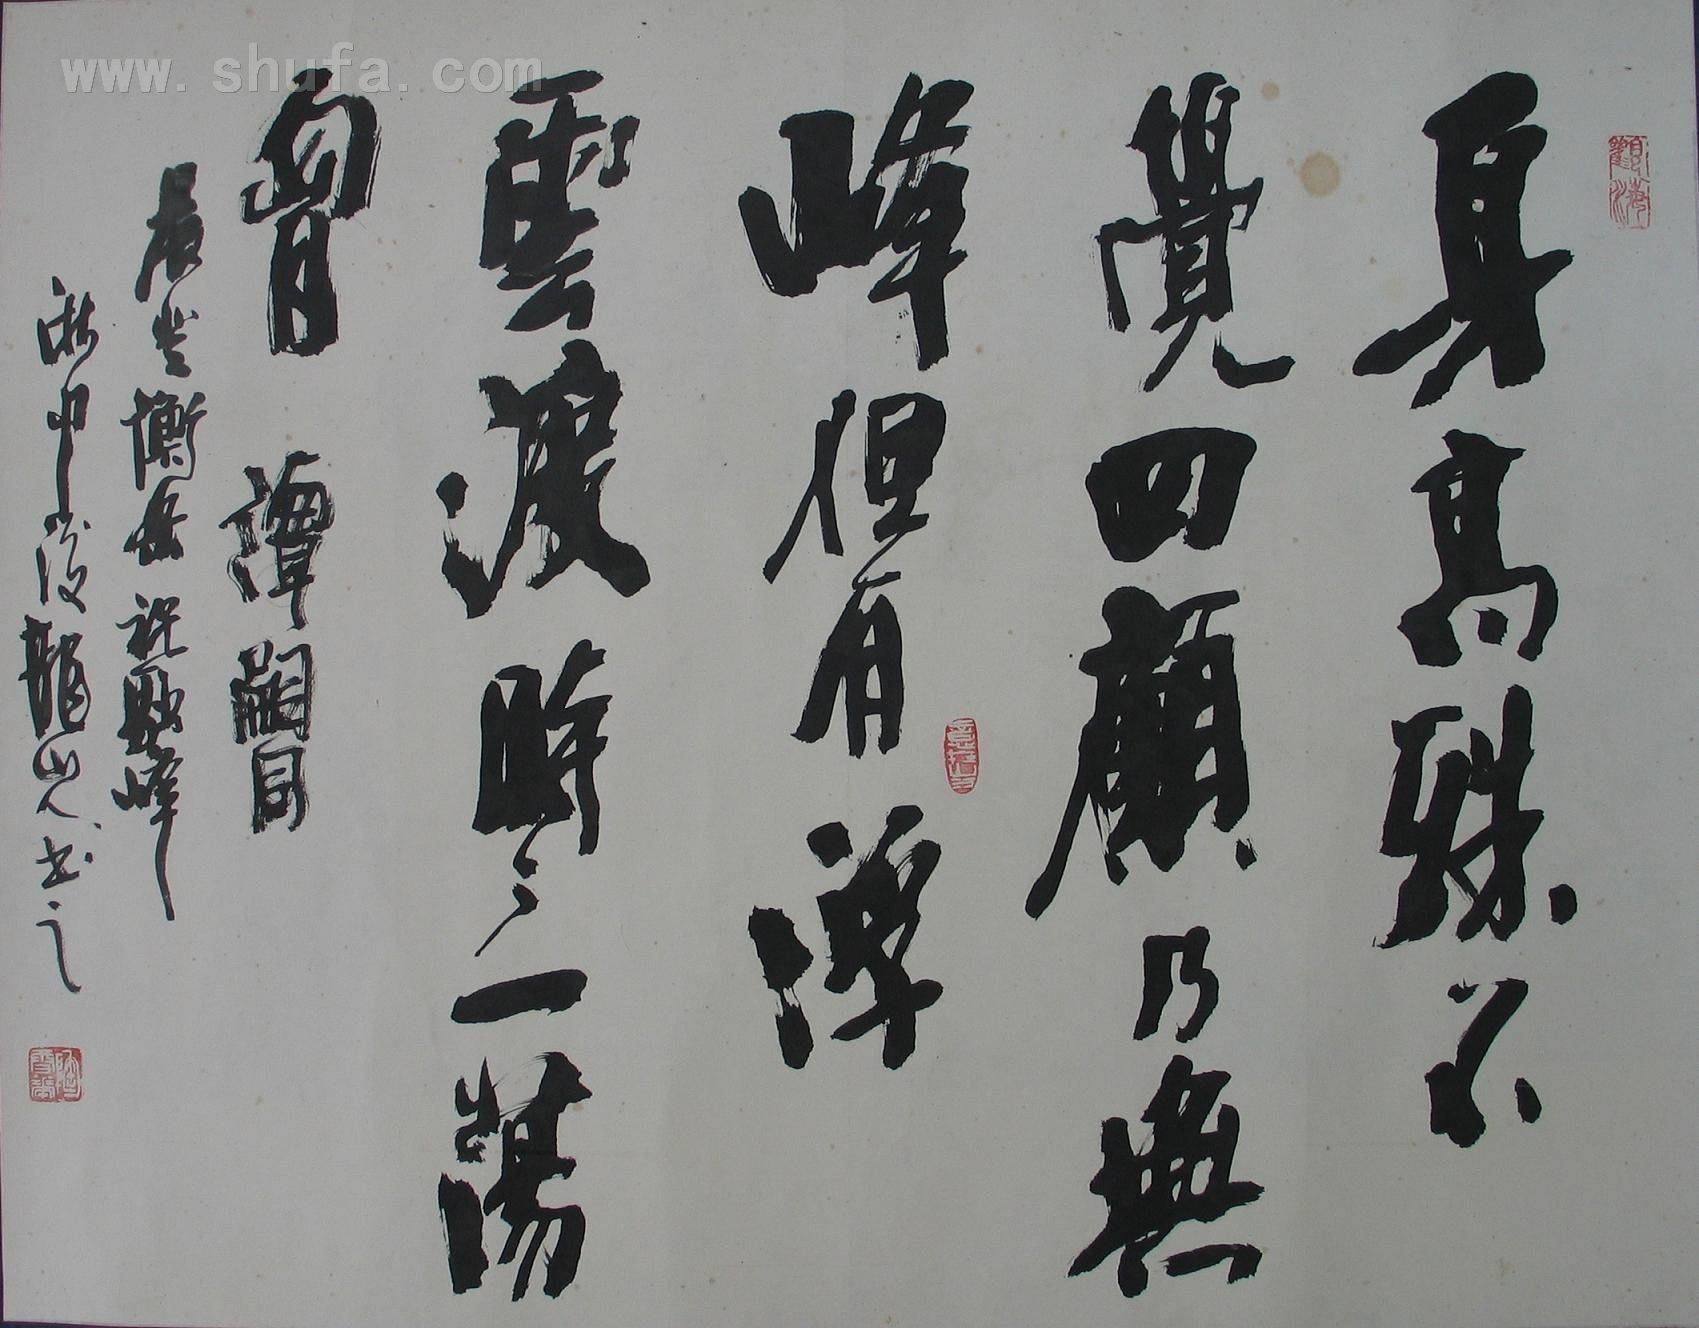 身高殊不
覺四顧乃無
峰但有浮
雲渡時時一蕩
胷 譚嗣同
晨登衡岳祝融峰
浙中後龍山人書之
www.shufa.com